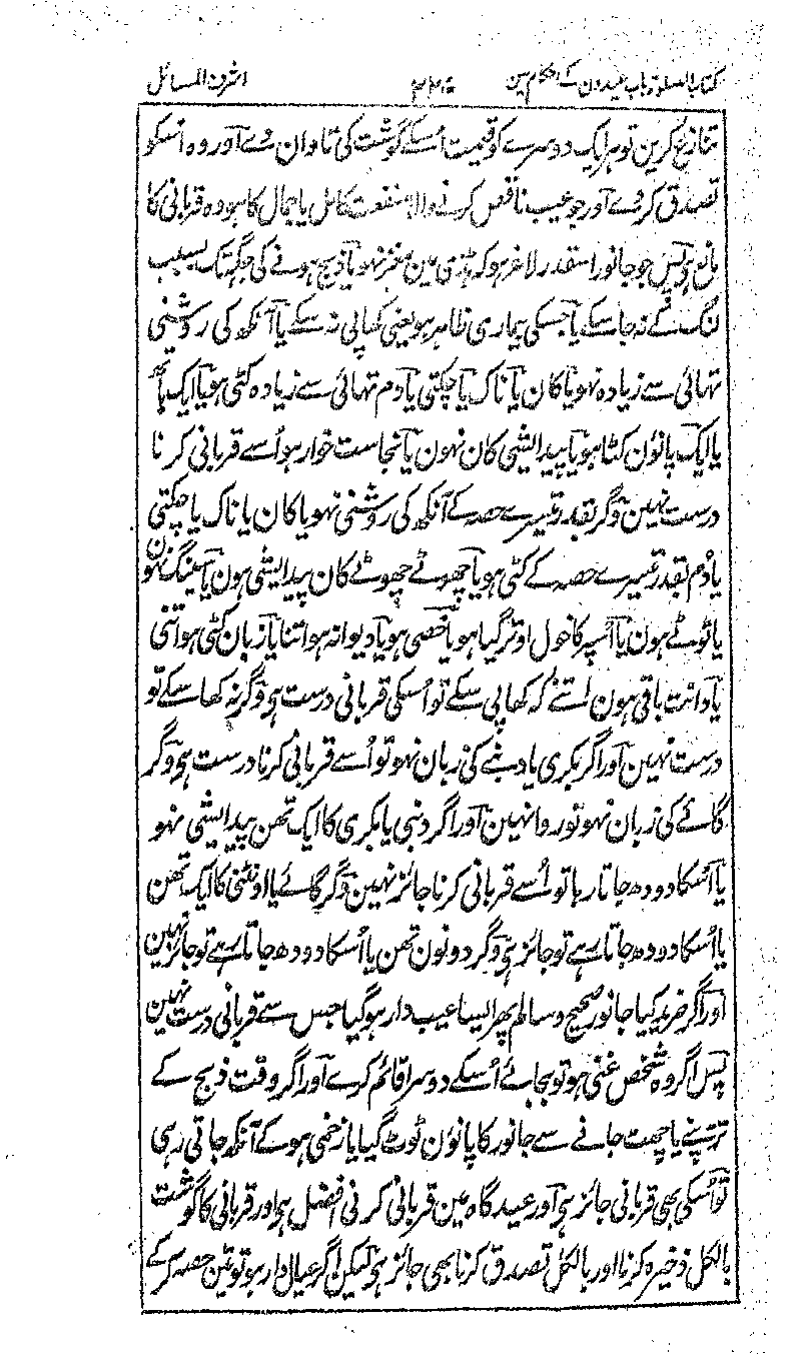 کتاب الصلوۃ باب عیدون کے احکام مین
۲۲۶
اشرف المسائل
تنازع کرین تو ہر ایک دوسرے کو قیمت اُسکے گوشت کی تاوان دے اور وہ اُسکو
تصدق کردے اور جو عیب ناقص کرنے والا منفعت کامل یا جمال کا ہو وہ قربانی کا
مانع ہے پس جو جانور اسقدر لاغر ہو کہ ہڈی مین مغز نہو یا ذبح ہونے کی جگہ تک بسبب
لنگ کے نہ جا سکے یا جسکی بیماری ظاہر ہو یعنی کھا پی نہ سکے یا آنکھ کی روشنی
تہائی سے زیادہ نہو یا کان یا ناک یا چکتی یا دم تہائی سے زیادہ کٹی ہو یا ایک ہاتھ
یا ایک پانوُن کٹا ہو یا پیدایشی کان نہون یا نجاست خوار ہو اُسے قربانی کرنا
درست نہین وگر بقدر تیسرے حصہ کے آنکھ کی روشنی نہو یا کان یا ناک یا چکتی
یا دُم بقدر تیسرے حصہ کے کٹی ہو یا چھوٹے چھوٹے کان پیدایشی ہون یا سینگ نہون
یا ٹوٹے ہون یا اُسپر کا خول اوتر گیا ہو یا خصی ہو یا دیوانہ ہو اتنا یا زبان کٹی ہو اتنی
یا دانت باقی ہون اتنے کہ کھا پی سکے تو اُسکی قربانی درست ہے وگر نہ کھا سکے تو
درست نہین اور اگر بکری یا دنبے کی زبان نہو تو اُسے قربانی کرنا درست ہے وگر
گائے کی زبان نہو تو روا نہین اور اگر دنبی یا بکری کا ایک تھن پیدایشی نہو
یا اُسکا دودھ جاتا رہا تو اُسے قربانی کرنا جائز نہین وگر گائے یا اونٹنی کا ایک تھن
یا اُسکا دودھ جاتا رہے تو جائز ہے وگر دونون تھن یا اُسکا دودھ جاتا رہے تو جائز نہین
اور اگر خرید کیا جانور صحیح و سالم پھر ایسا عیب دار ہو گیا جس سے قربانی درست نہین
پس اگر وہ شخص غنی ہو تو بجائے اُسکے دوسرا قائم کرے اور اگر وقت ذبح کے
تڑپنے یا چھٹ جانے سے جانور کا پانوُن ٹوٹ گیا یا زخمی ہو کے آنکھ جاتی رہی
تو اُسکی بھی قربانی جائز ہے اور عیدگاہ مین قربانی کرنی افضل ہے اور قربانی کا گوشت
بالکل ذخیرہ کرنا اور بالکل تصدق کرنا بھی جائز ہے لیکن اگر عیال دار ہو تو تین حصہ کرکے